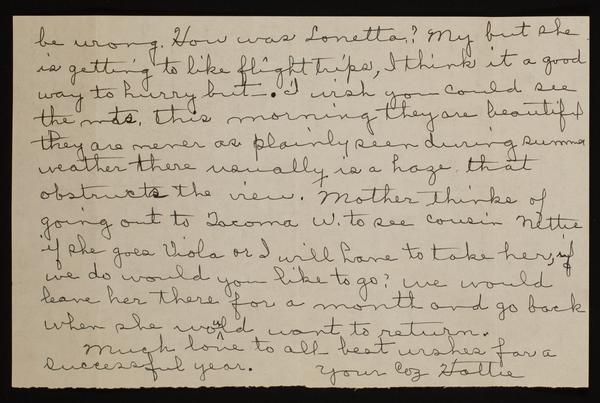 be wrong. How was Lonetta? My but she
is getting to like flight trips, I think it a good
way to hurry but—. I wish you could see
the mts. this morning they are beautiful
they are never as plainly seen during summer
weather there usually is a haze that
obstructs the view. Mother thinks of
going out to Tacoma W. to see cousin Nettie
if she goes Viola or I will have to take her, if
we do would you like to go? we would
leave her there for a month and go back
when she would want to return.
Much love to all best wishes for a
successful year. Your Coz Hattie